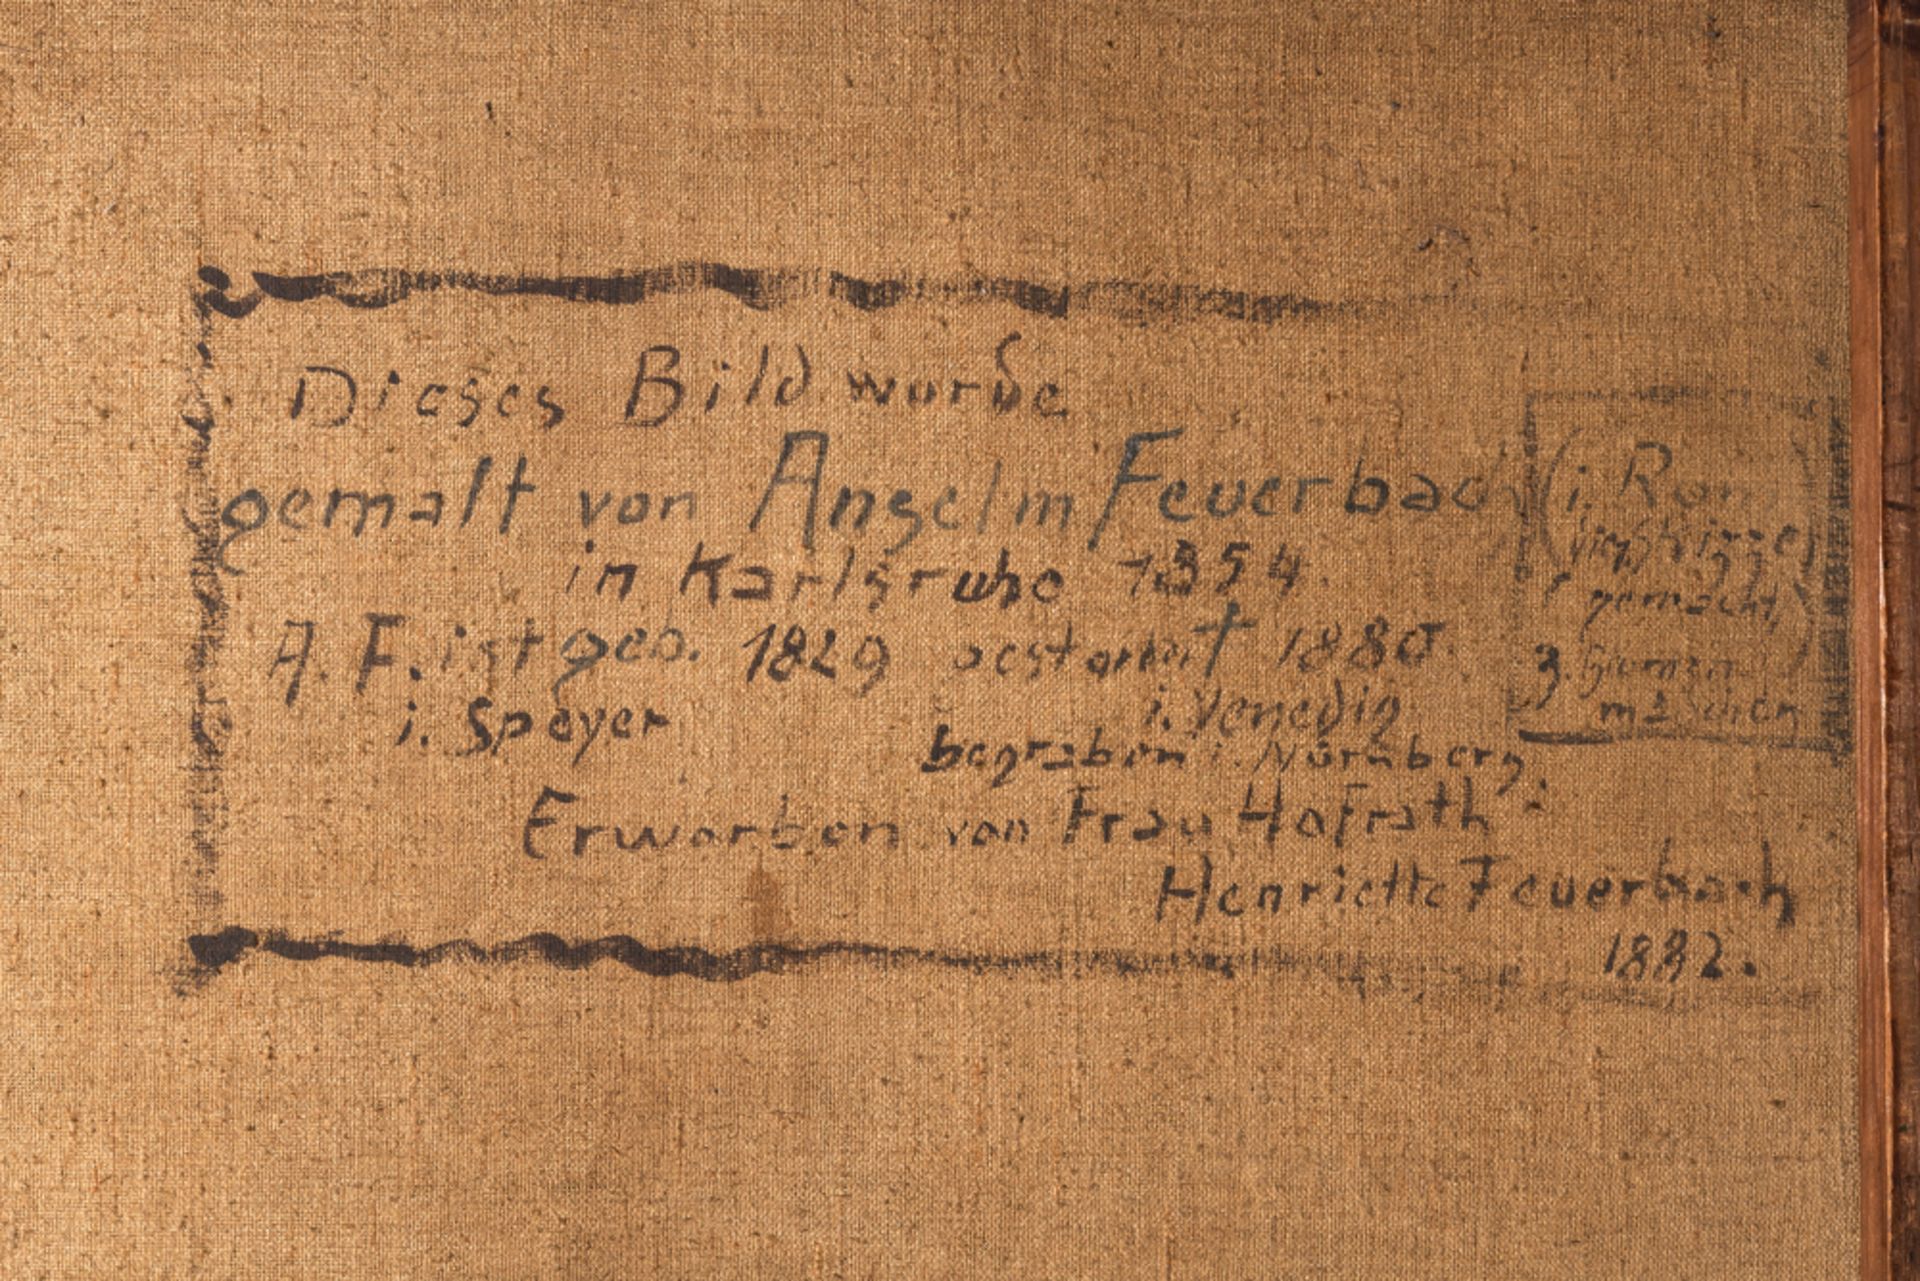 Dieses Bild wurde
gemalt von Anselm Feuerbach
in Karlsruhe 1854.
A. F. ist geb. 1829 gestorben † 1880.
i. Speyer i. Venedig
begraben i. Nürnberg.
Erworben von Frau Hofrath
Henriette Feuerbach
1882.
(i. Rom
gemacht)